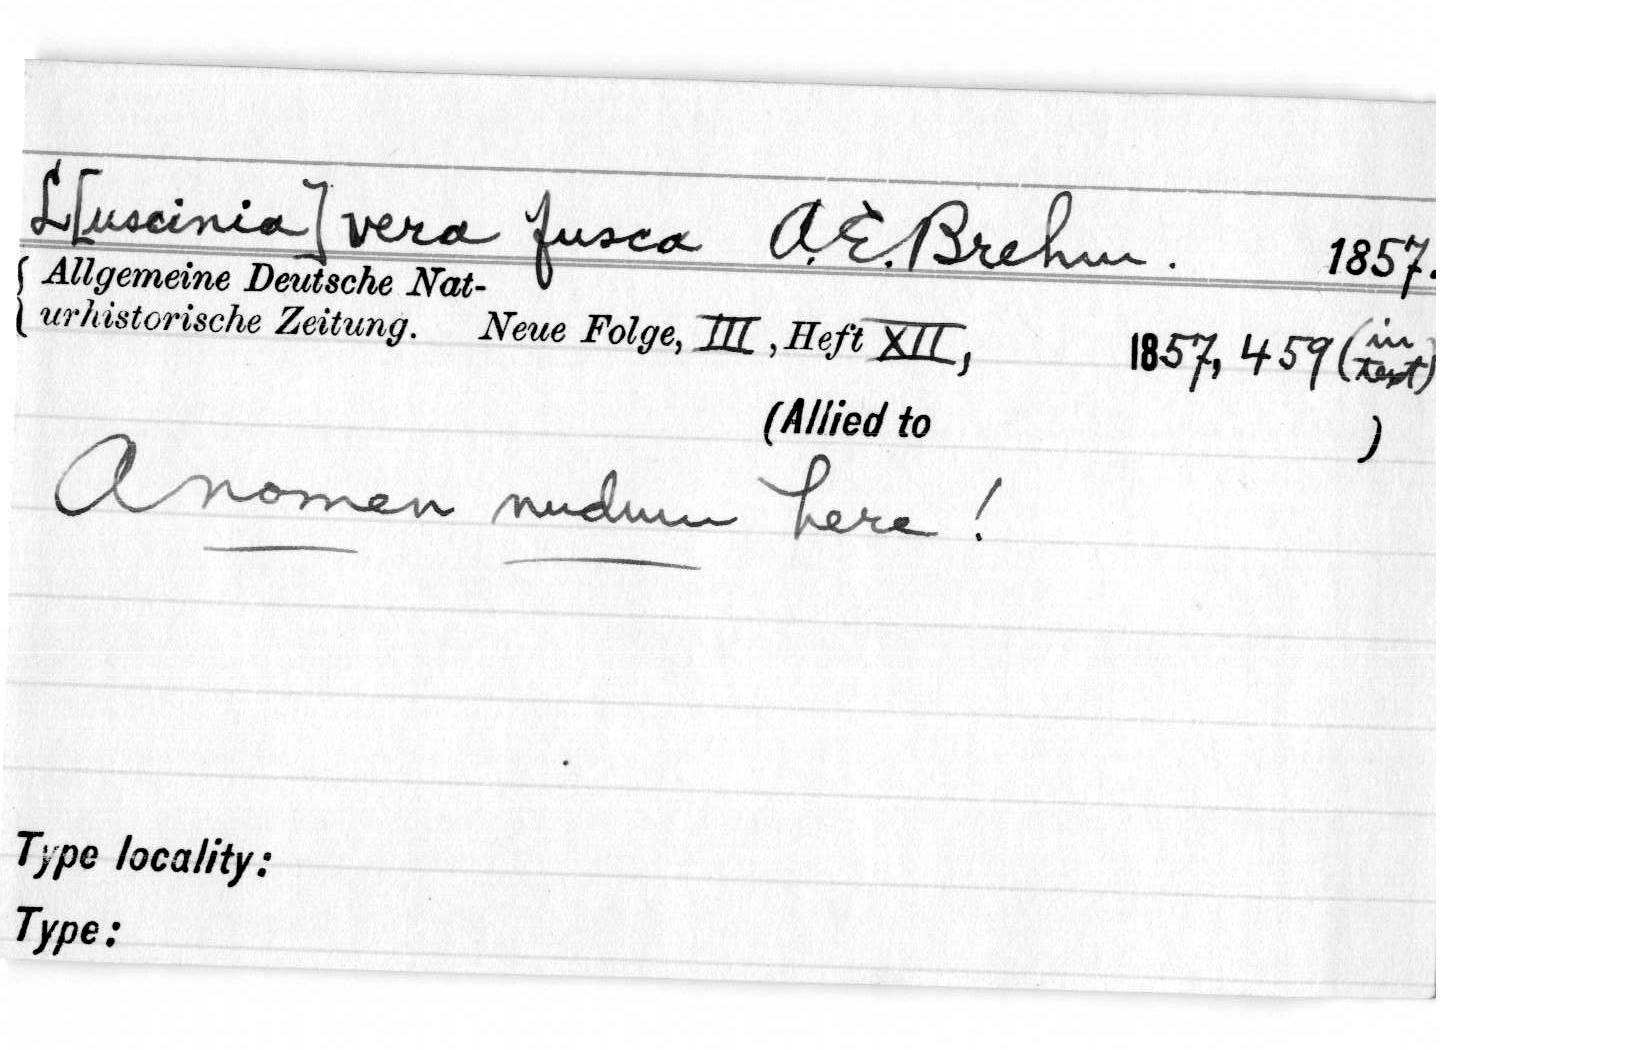 L[uscinia] vera fusca A.E. Brehm. 1857.
{ Allgemeine Deutsche Nat-
{ urhistorische Zeitung. Neue Folge, III, Heft XII, 1857, 459 (in text)
(Allied to )
A nomen nudum here!
Type locality:
Type: